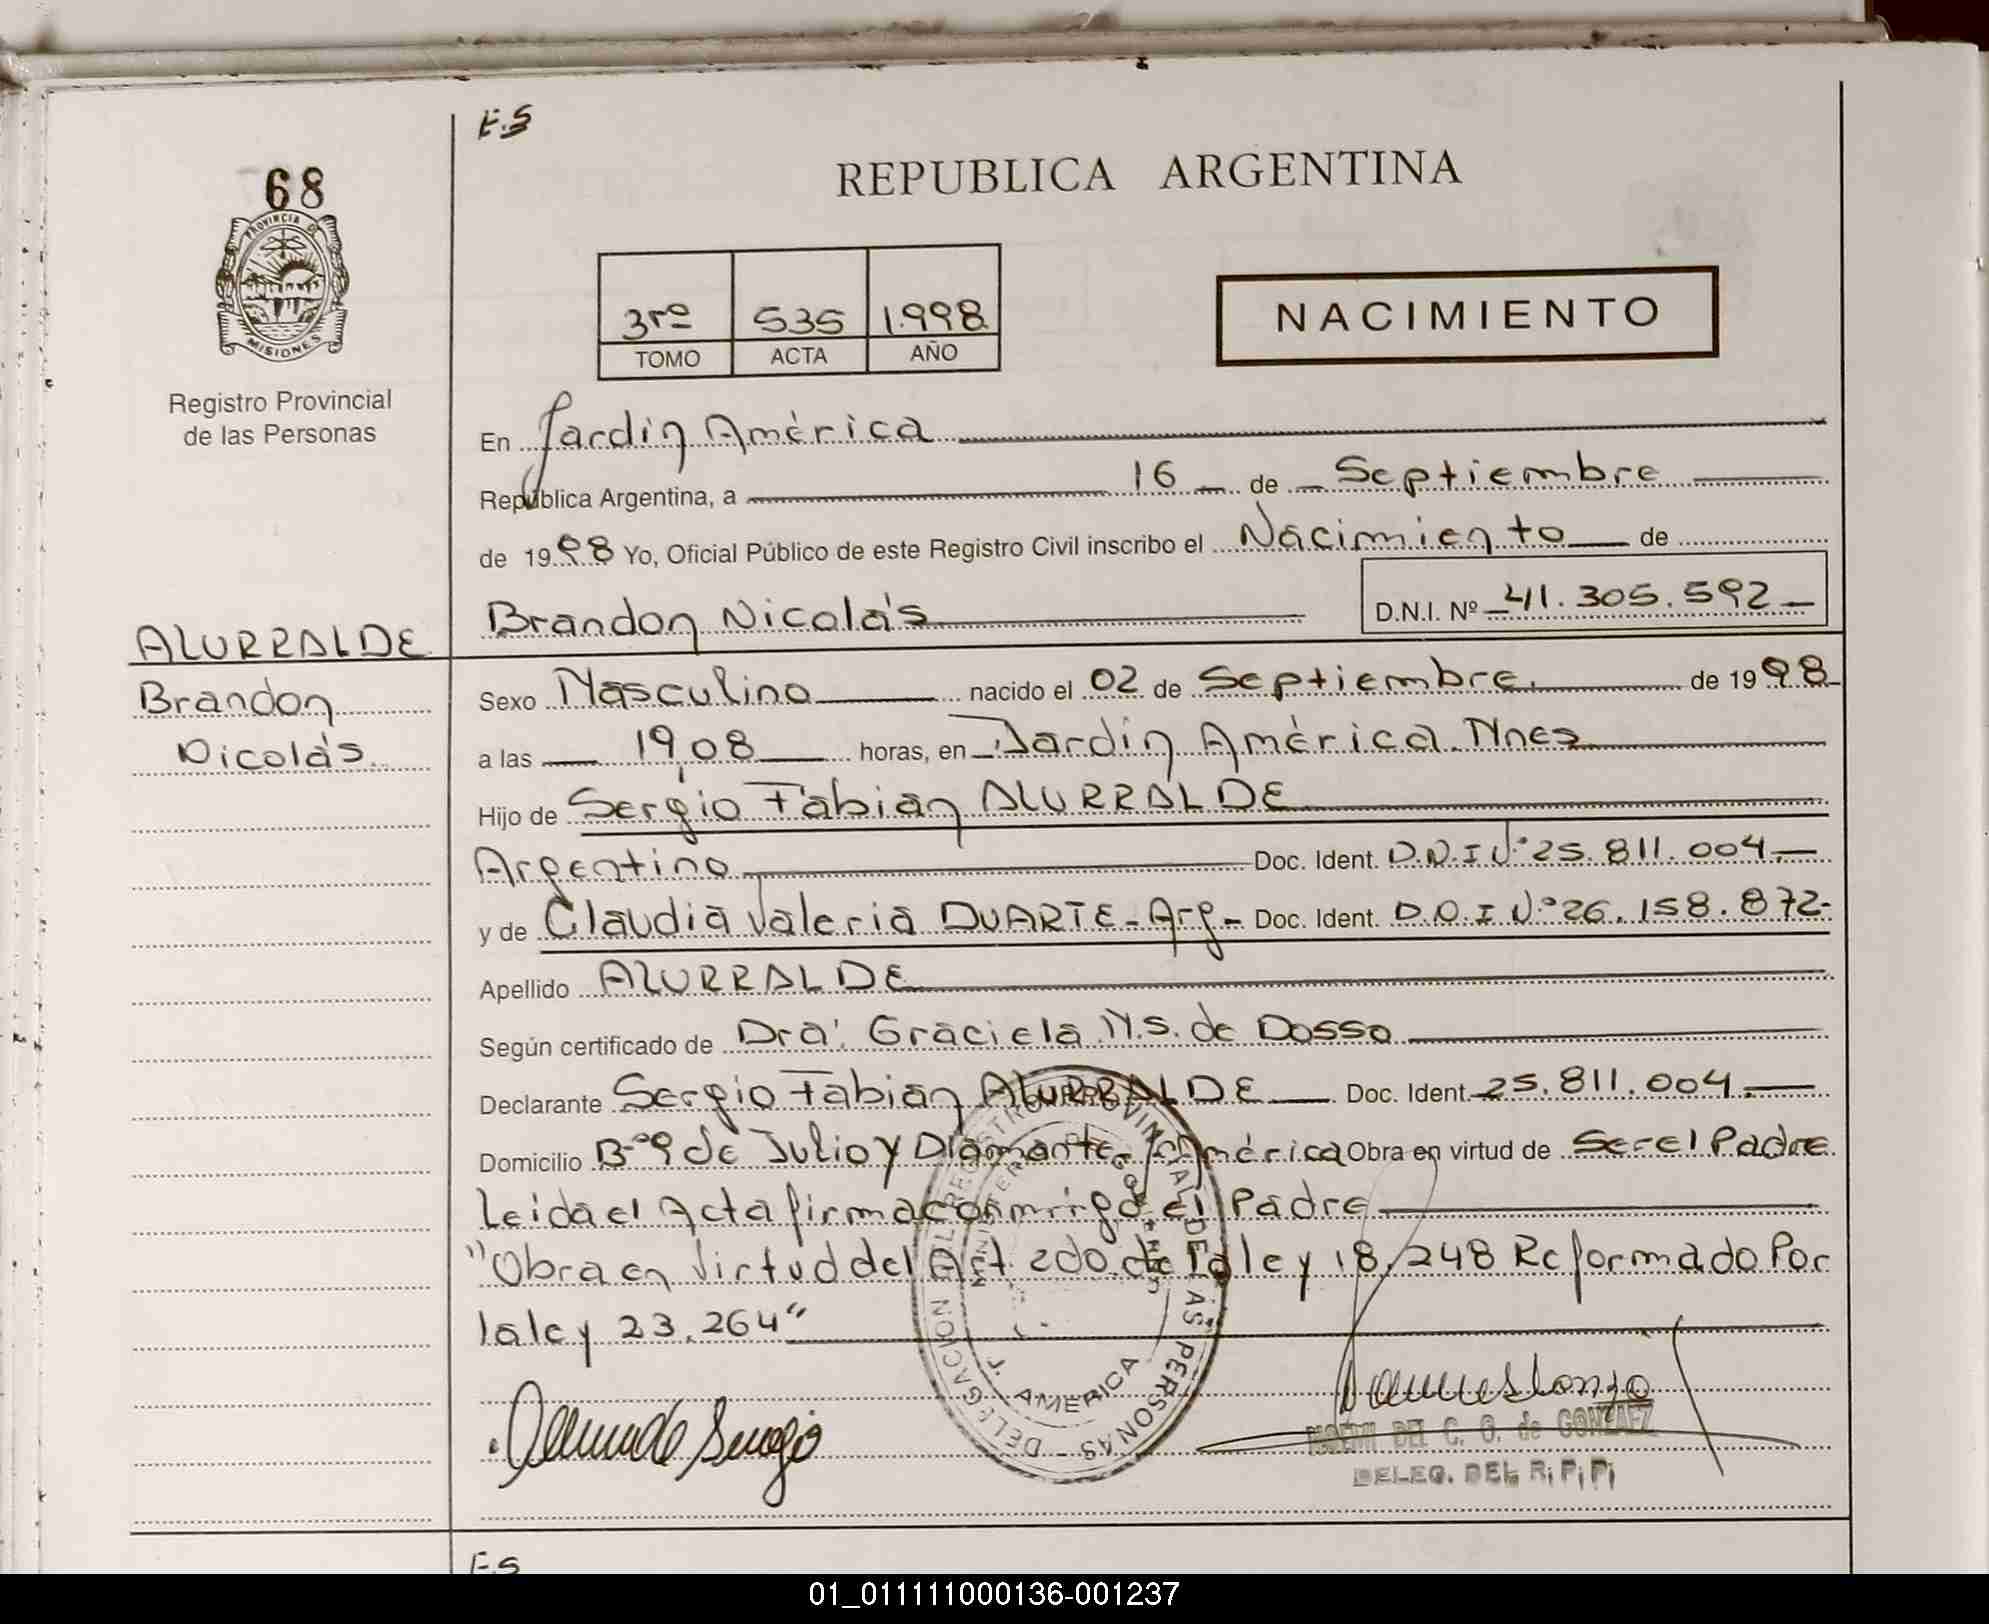 E.S
68
REPUBLICA ARGENTINA
PROVINCIA DE
MISIONES
Registro Provincial
de las Personas
3ro 535 1.998
TOMO ACTA AÑO
NACIMIENTO
En Jardin América
República Argentina, a 16 de Septiembre
de 1998 Yo, Oficial Público de este Registro Civil inscribo el Nacimiento de
Brandon Nicolás D.N.I. Nº 41.305.592
ALURRALDE
Brandon
Nicolás
Sexo Masculino nacido el 02 de Septiembre de 1998
a las 19,08 horas, en Jardin América. Mnes
Hijo de Sergio Fabian ALURRALDE
Argentino Doc. Ident. D.N.I Nº 25.811.004
y de Claudia Valeria DUARTE-Arg- Doc. Ident. D.N.I Nº 26.158.872-
Apellido ALURRALDE
Según certificado de Dra. Graciela M.S. de Dosso
Declarante Sergio Fabian ALURRALDE Doc. Ident. 25.811.004
Domicilio Bº 9 de Julio y Diamante América Obra en virtud de Ser el Padre
Leida el Acta firma conmigo el Padre
"Obra en Virtud del Art. 2do. de la ley 18,248 Reformado Por
la ley 23.264"
DELEGACION REGISTRO PROVINCIAL DE LAS PERSONAS
J. AMERICA
NOEMI DEL C. O. de GONZALEZ
DELEG. DEL R.P.P.
E.S
01_011111000136-001237